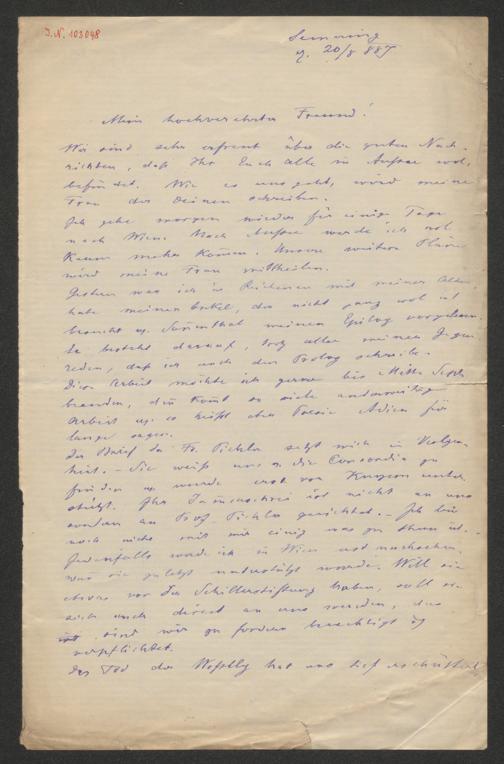 J.N. 103048
Semering
20/8 887
Mein hochverehrter Freund!
Wir sind sehr erfreut über die guten Nach-
richten, daß Ihr Euch alle in Aussee wol,
befindet. Wie es uns geht, wird meine
Frau der Deinen schreiben.
Ich gehe morgen wieder für einige Tage
nach Wien. Nach Aussee werde ich wol
kaum mehr kommen. Unsere weitere Pläne
wird meine Frau mittheilen.
Gestern war ich in Reichenau mit meiner
habe meinen Enkel, der nicht ganz wol ist
besucht u. meinen Epilog vorgelesen.
Er besteht darauf, trotz aller meiner Gegen
reden, daß ich auch den Prolog schreibe.
Diese Arbeit möchte ich gerne bis Mitte Sept.
beenden, dann kommt so viele anderweitige
Arbeit u. es heißt der Poesie Adieu für
lange sagen.
Der Brief der Fr. Pichler setzt mich in Verlegen
heit. – Sie weiß uns in der Concordia zu
finden u. wurde erst von unter
stützt. Ihr ist nicht an uns
sondern an Prof. Pichler gerichtet. – Ich bin
noch nicht mit mir einig was zu thun ist. –
Jedenfalls werde ich in Wien erst nachsehen,
wann sie zuletzt unterstützt wurde. Will sie
etwas von der Schillerstiftung haben, soll sie
sich auch direct an uns wenden, das
sind wir zu fordern berechtigt u.
verpflichtet.
Der Tod der hat uns tief erschüttert